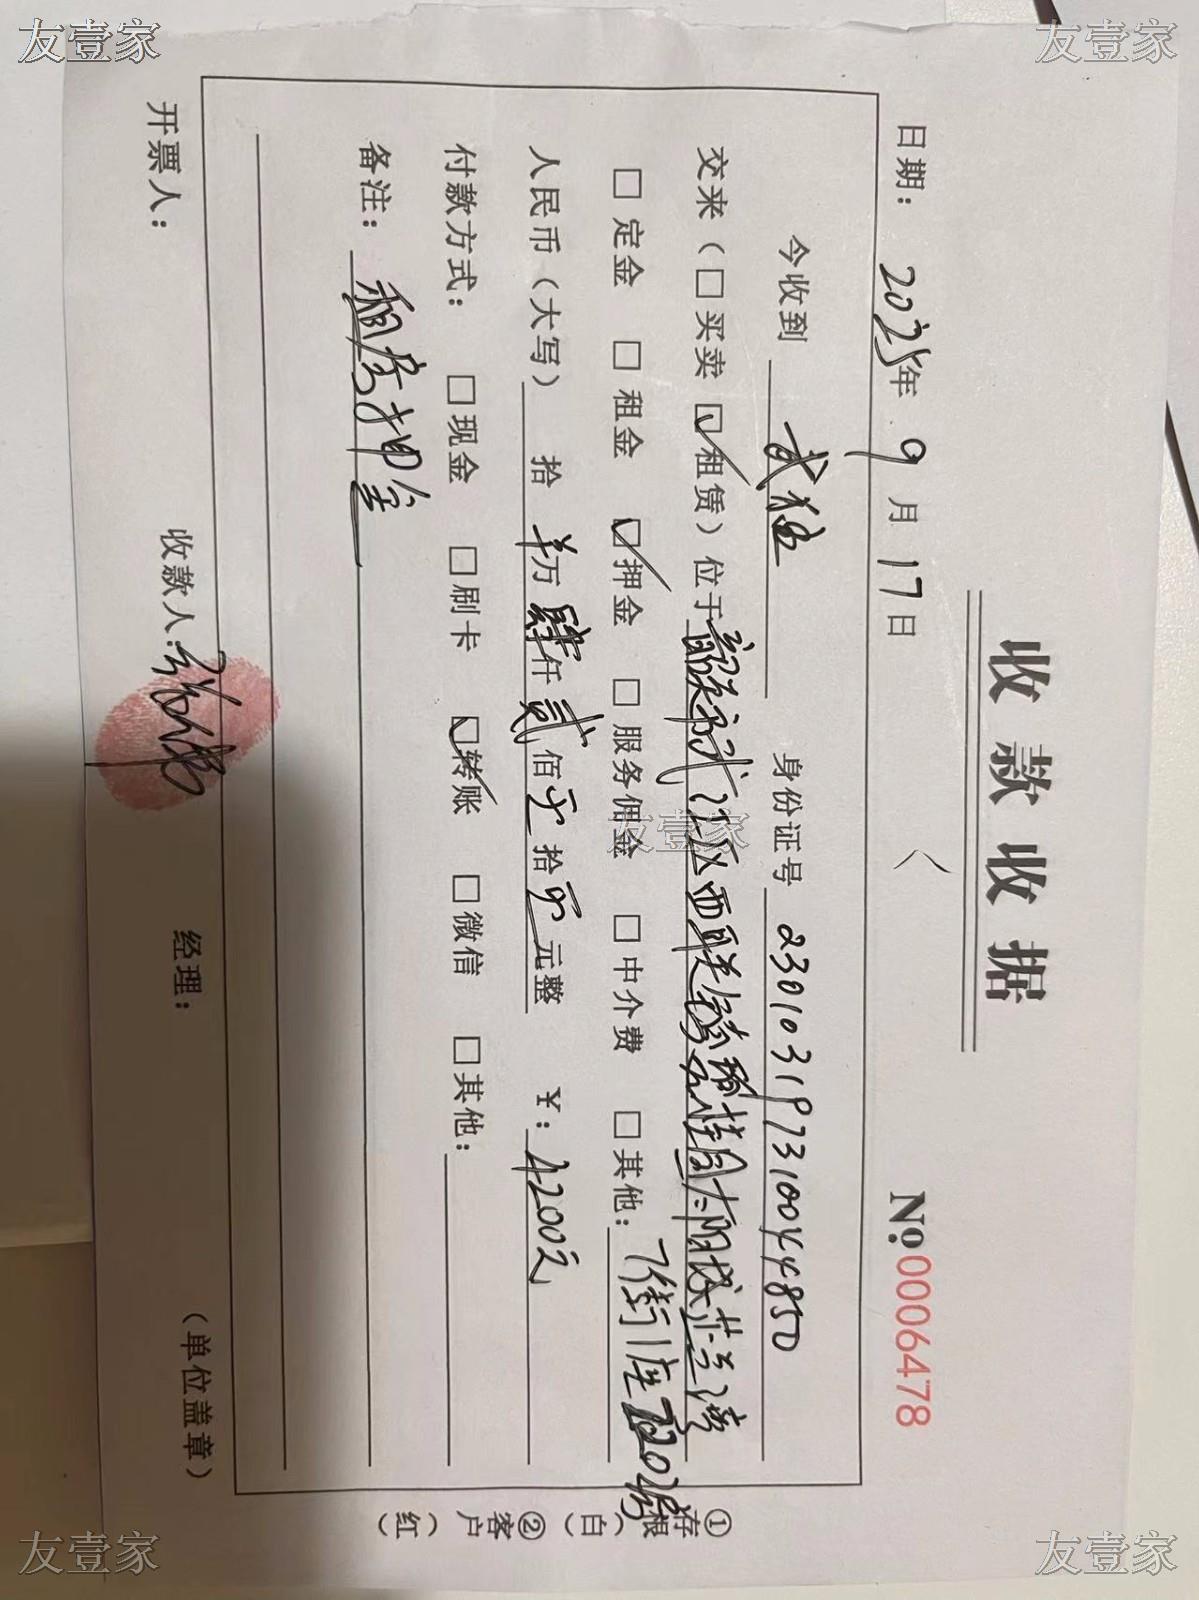 友壹家
友壹家
收款收据
№0006478
日期：2025年9月17日
今收到 武
身份证号 230103197310044850
交来（□买卖 ☑租赁）位于韶关市武江区西联镇 太阳城芷兰湾
□定金 □租金 ☑押金 □服务佣金 □中介费 □其他：
7街1座
人民币（大写） 拾 万肆仟贰佰零拾零元整 ¥：4200元
付款方式： □现金 □刷卡 ☑转账 □微信 □其他：
备注： 租房押金
开票人： 收款人： 经理： （单位盖章）
①存根（白） ②客户（红）
友壹家
友壹家
友壹家